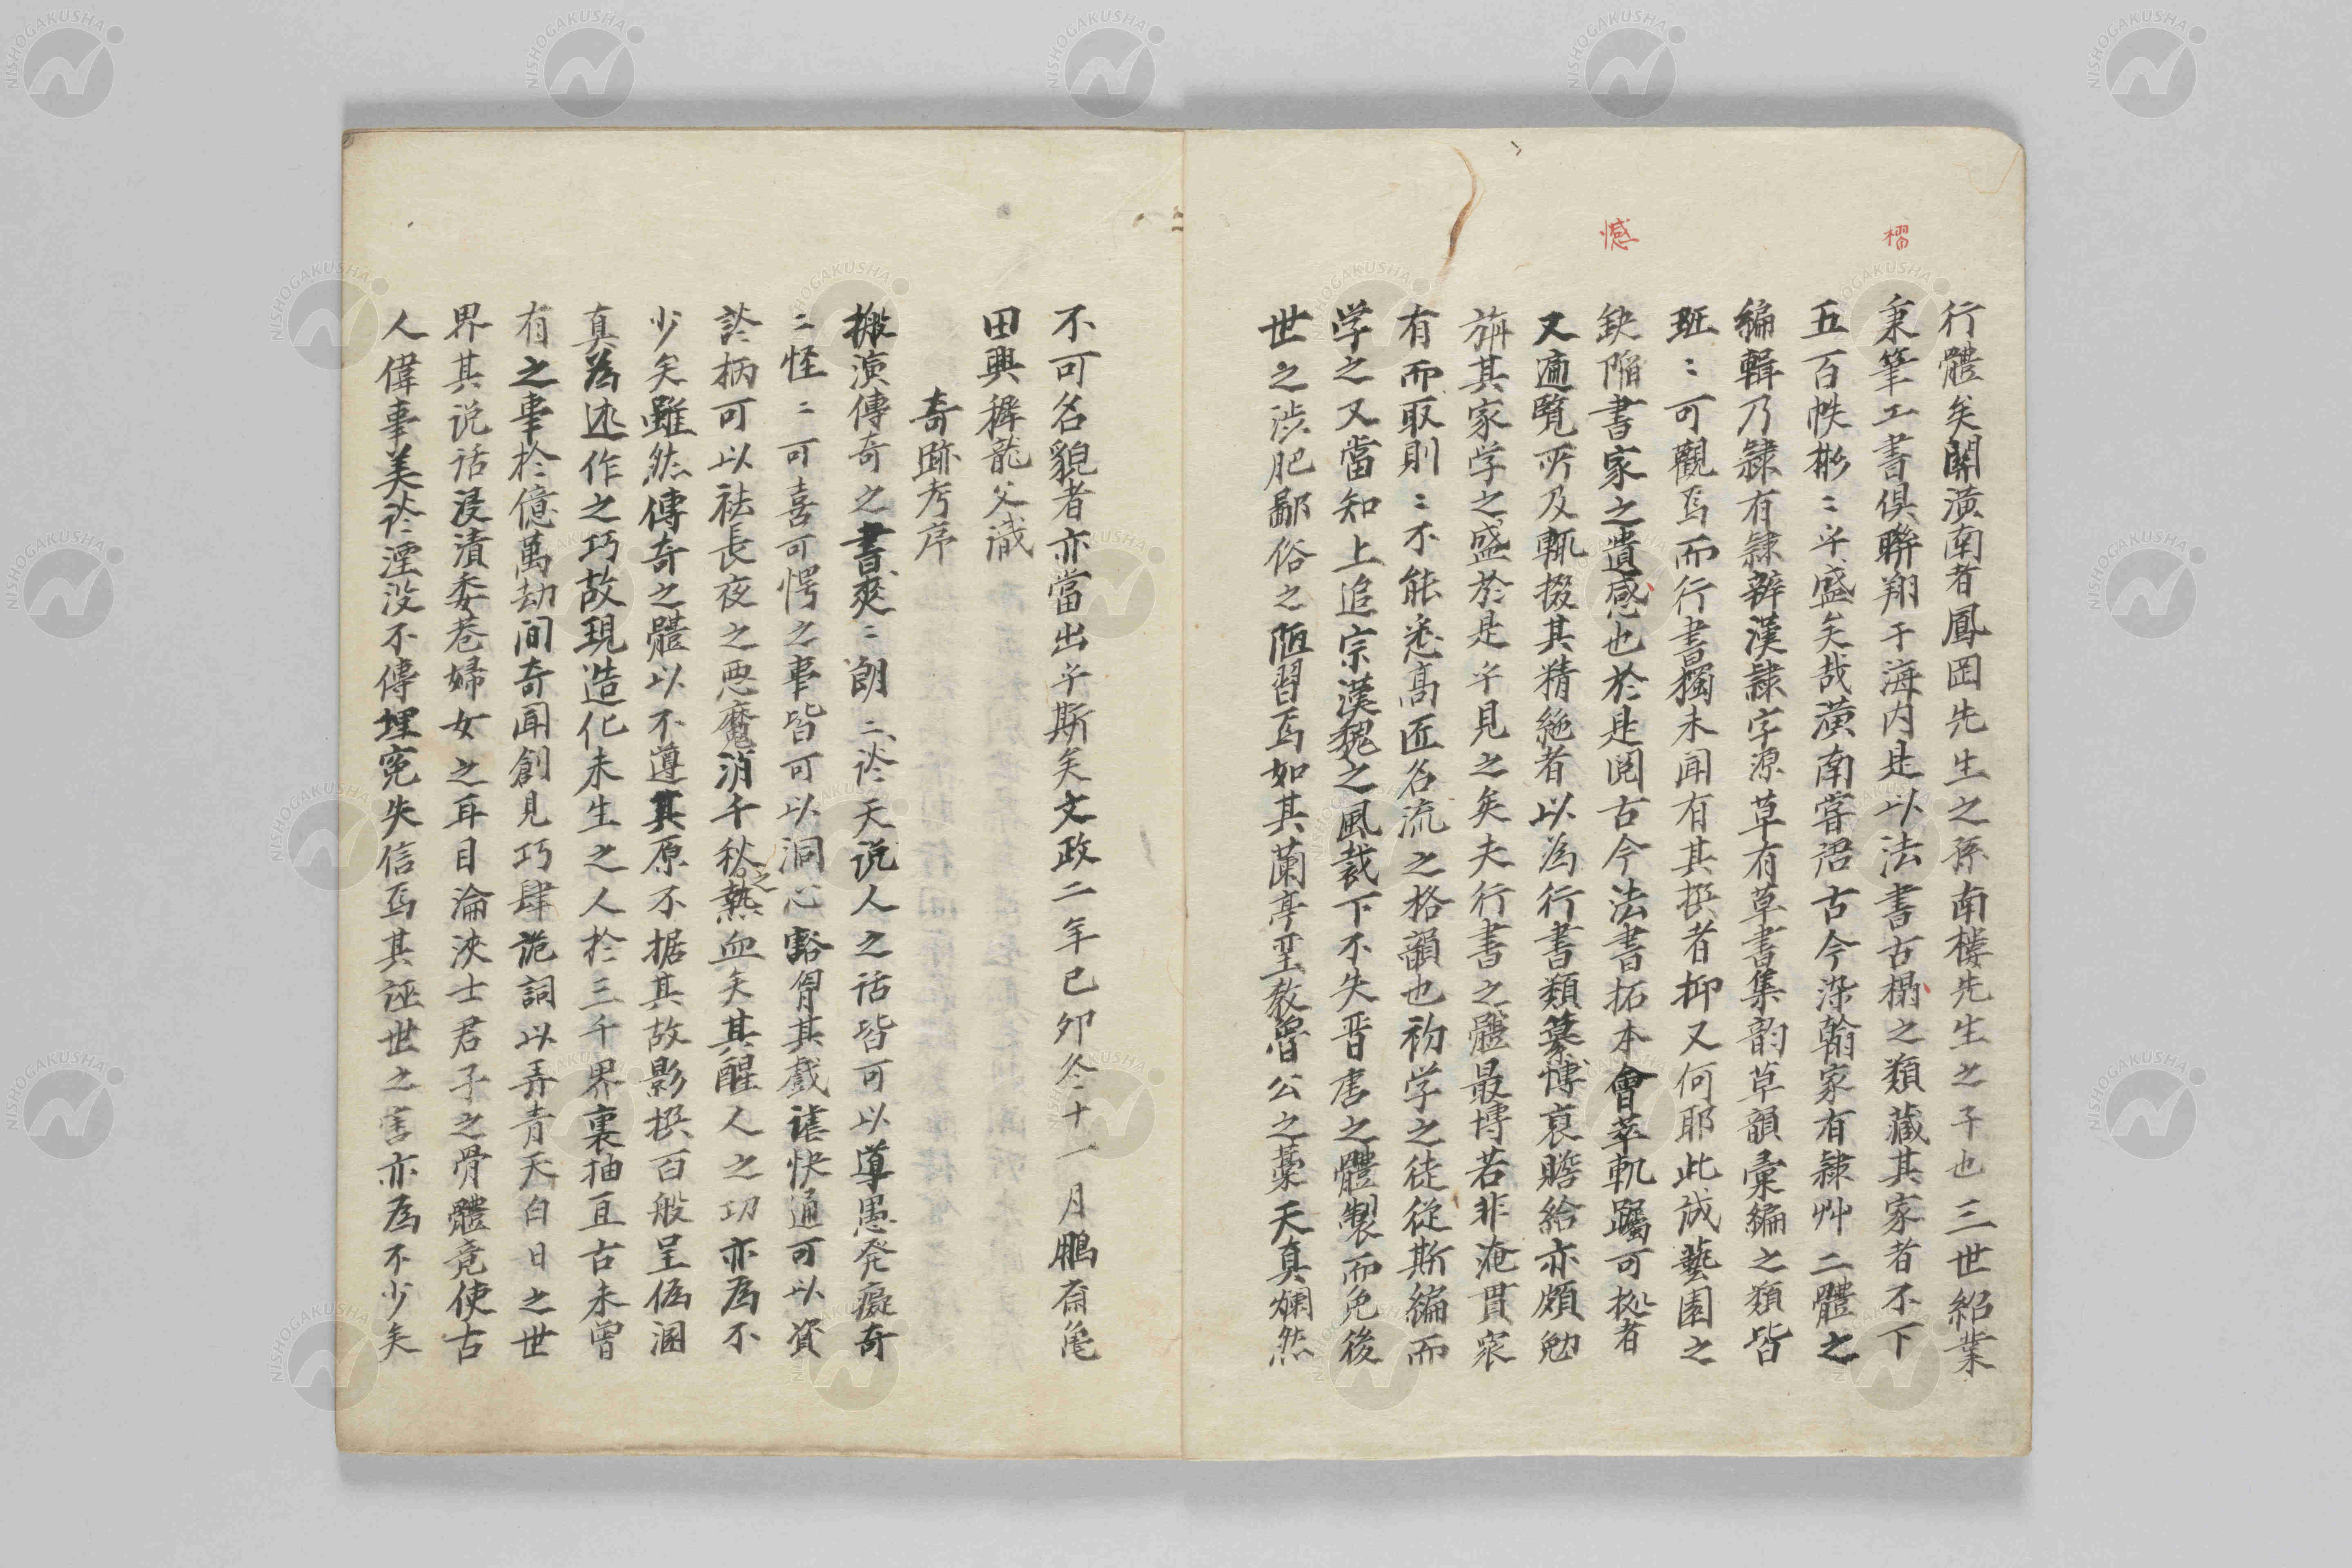 行體矣關潢南者鳳岡先生之孫南樓先生之子也三世紹業
秉筆工書俱聯翔于海內是以法書古榻之類藏其家者不下
五百帙彬〻乎盛矣哉潢南嘗沼古今染翰家有隷艸二體之
編輯乃隷有隷辨漢隷字源草有草書集韵草韻彙編之類皆
班〻可觀焉而行書獨未聞有其撰者抑又何耶此誠藝園之
缺陷書家之遺感也於是閲古今法書拓本會萃軌躅可拠者
又適覽所及輒掇其精絶者以為行書類纂博裒贍給亦頗勉
旃其家学之盛於是乎見之矣夫行書之體最博若非淹貫
有而取則〻不能悉髙匠名流之格韻也初学之徒從斯編而
学之又當知上追宗漢魏之風裁下不失晋唐之體製而免後
世之渋肥鄙俗之陋習焉如其蘭亭聖教魯公之藁天真爛然
不可名貌者亦當出乎斯矣文政二年已卯冬十一月鵬斎亀
田興穉龍父識
奇跡考序
搬演傳奇之書爽〻朗〻談天说人之话皆可以導愚発癡奇
〻怪〻可喜可愕之事皆可以洞心豁胷其戲謔快通可以資
談柄可以祛長夜之悪魔消千秋之熱血矣其醒人之功亦為不
少矣雖然傳奇之體以不遵其原不据其故影撰百般呈偽溷
真為述作之巧故現造化未生之人於三千界裏抽亘古未曾
有之事於億萬劫间奇闻創見巧肆诡詞以弄青天白日之世
界其说话浸漬委巷婦女之耳目淪浹士君子之骨體竟使古
人偉事美談湮没不傳埋冤失信焉其誣世之害亦為不少矣
榻
憾
NISHOGAKUSHA